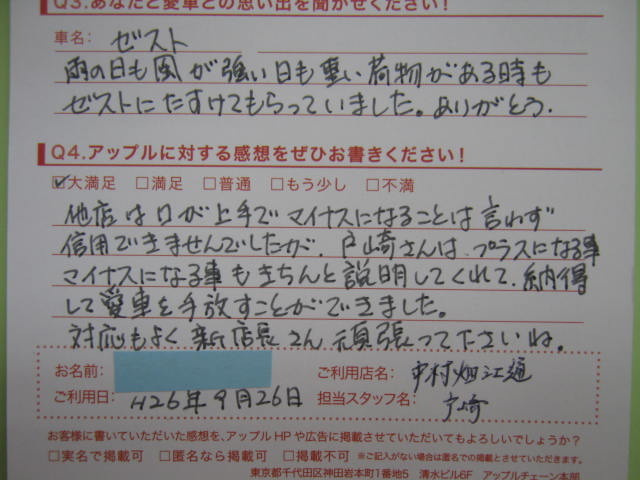 Q3.あなたと愛車との思い出を聞かせてください!
車名: ゼスト
雨の日も風が強い日も重い荷物がある時も
ゼストにたすけてもらっていました。ありがとう.
Q4.アップルに対する感想をぜひお書きください!
☑大満足 □満足 □普通 □もう少し □不満
他店は口が上手でマイナスになることは言わず
信用できませんでしたが、戸崎さんは、プラスになる事
マイナスになる事もきちんと説明してくれて、納得
して愛車を手放すことができました。
対応もよく新店長さん頑張って下さいね。
お名前: ご利用店名: 中村畑江通
ご利用日: H26年9月26日 担当スタッフ名: 戸崎
お客様に書いていただいた感想を、アップルHPや広告に掲載させていただいてもよろしいでしょうか?
□実名で掲載可 □匿名なら掲載可 □掲載不可 ※ご記入がない場合は匿名での掲載とさせていただきます。
東京都千代田区神田岩本町1番地5 清水ビル6F アップルチェーン本部